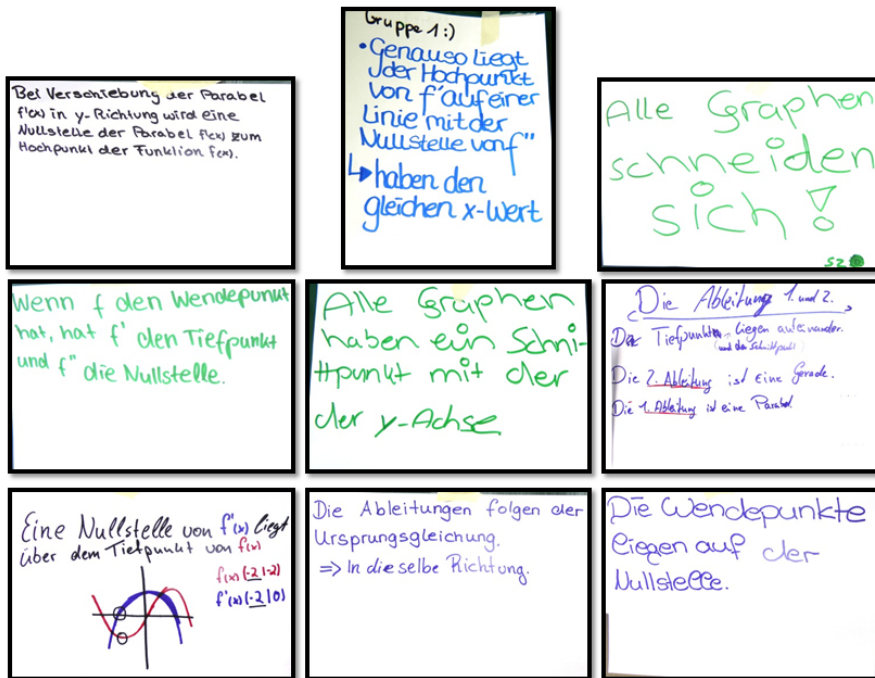 Bei Verschiebung der Parabel
f'(x) in y-Richtung wird eine
Nullstelle der Parabel f'(x) zum
Hochpunkt der Funktion f(x).
Gruppe 1:)
• Genauso liegt
der Hochpunkt
von f' auf einer
Linie mit der
Nullstelle von f''
↳ haben den
gleichen x-Wert
Alle Graphen
schneiden
sich!
SZ
Wenn f den Wendepunkt
hat, hat f' den Tiefpunkt
und f'' die Nullstelle.
Alle Graphen
haben ein Schni-
ttpunkt mit der
der y-Achse
Die Ableitung 1. und 2.
Der Tiefpunkt liegen aufeinander.
(und der Schnittpunkt)
Die 2. Ableitung ist eine Gerade.
Die 1. Ableitung ist eine Parabel.
Eine Nullstelle von f'(x) liegt
über dem Tiefpunkt von f(x)
f(x) (-2|-2)
f'(x) (-2|0)
Die Ableitungen folgen der
Ursprungsgleichung.
⇒ In dieselbe Richtung.
Die Wendepunkte
liegen auf der
Nullstelle.